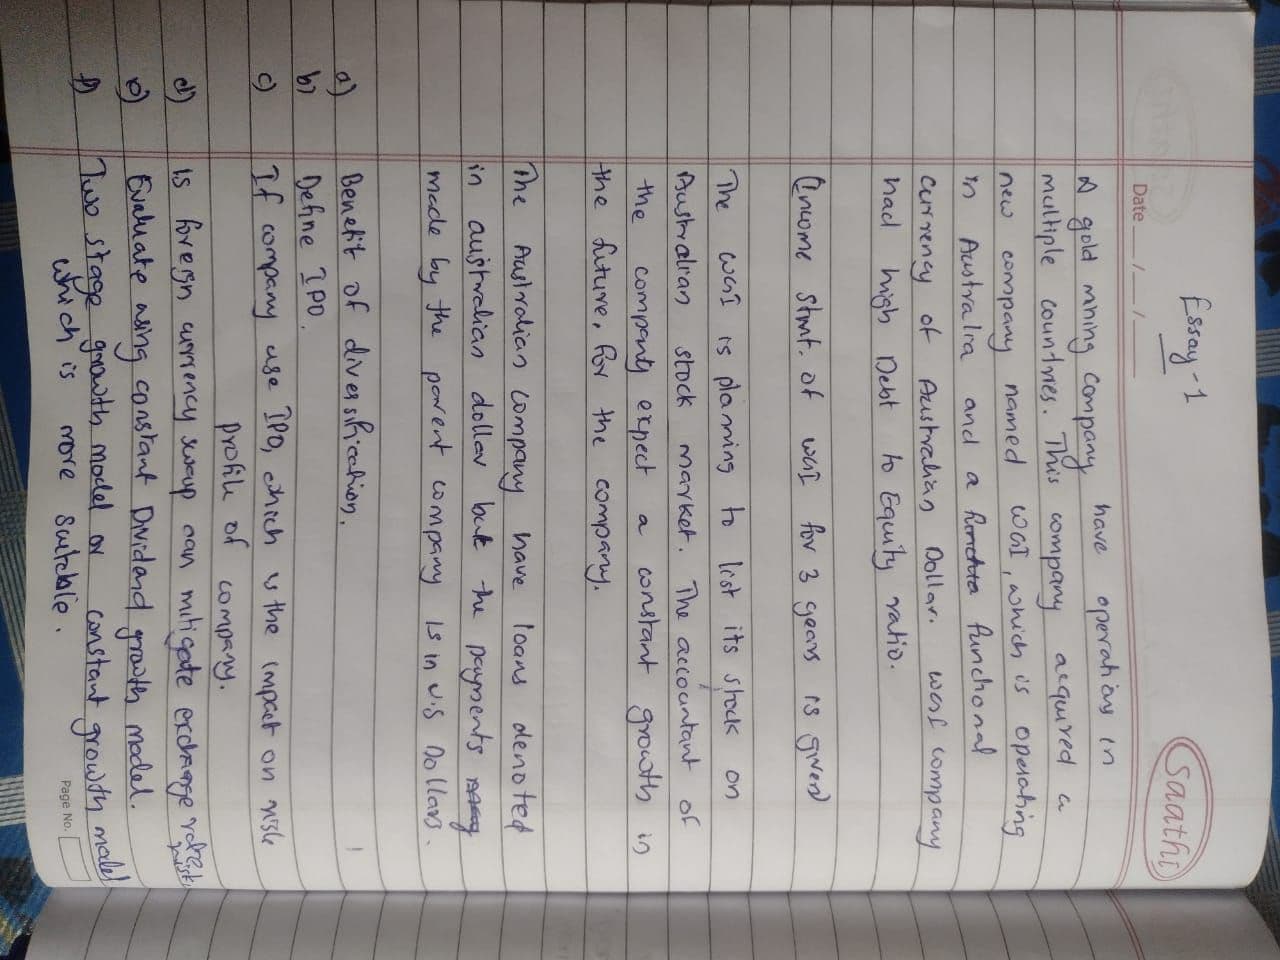 Saathi
Essay-1
Date __/__/__
A gold mining company have operations in
multiple countries. This company acquired a
new company named WGI, which is operating
in Australia and a functional
currency of Australian Dollar. WGI company
had high Debt to Equity ratio.
(Income stmt. of WGI for 3 years is given)
The WGI is planning to list its stock on
Australian stock market. The accountant of
the company expect a constant growth in
the future, for the company.
The Australian company have loans denoted
in australian dollar but the payments
made by the parent company is in U.S Dollars.
a) Benefit of diversification.
b) Define IPO.
c) If company use IPO, which is the impact on risk
profile of company.
d) Is foreign currency swap can mitigate exchange rate risk
e) Evaluate using constant Dividend growth model.
f) Two stage growth model or constant growth model
which is more suitable.
Page No.